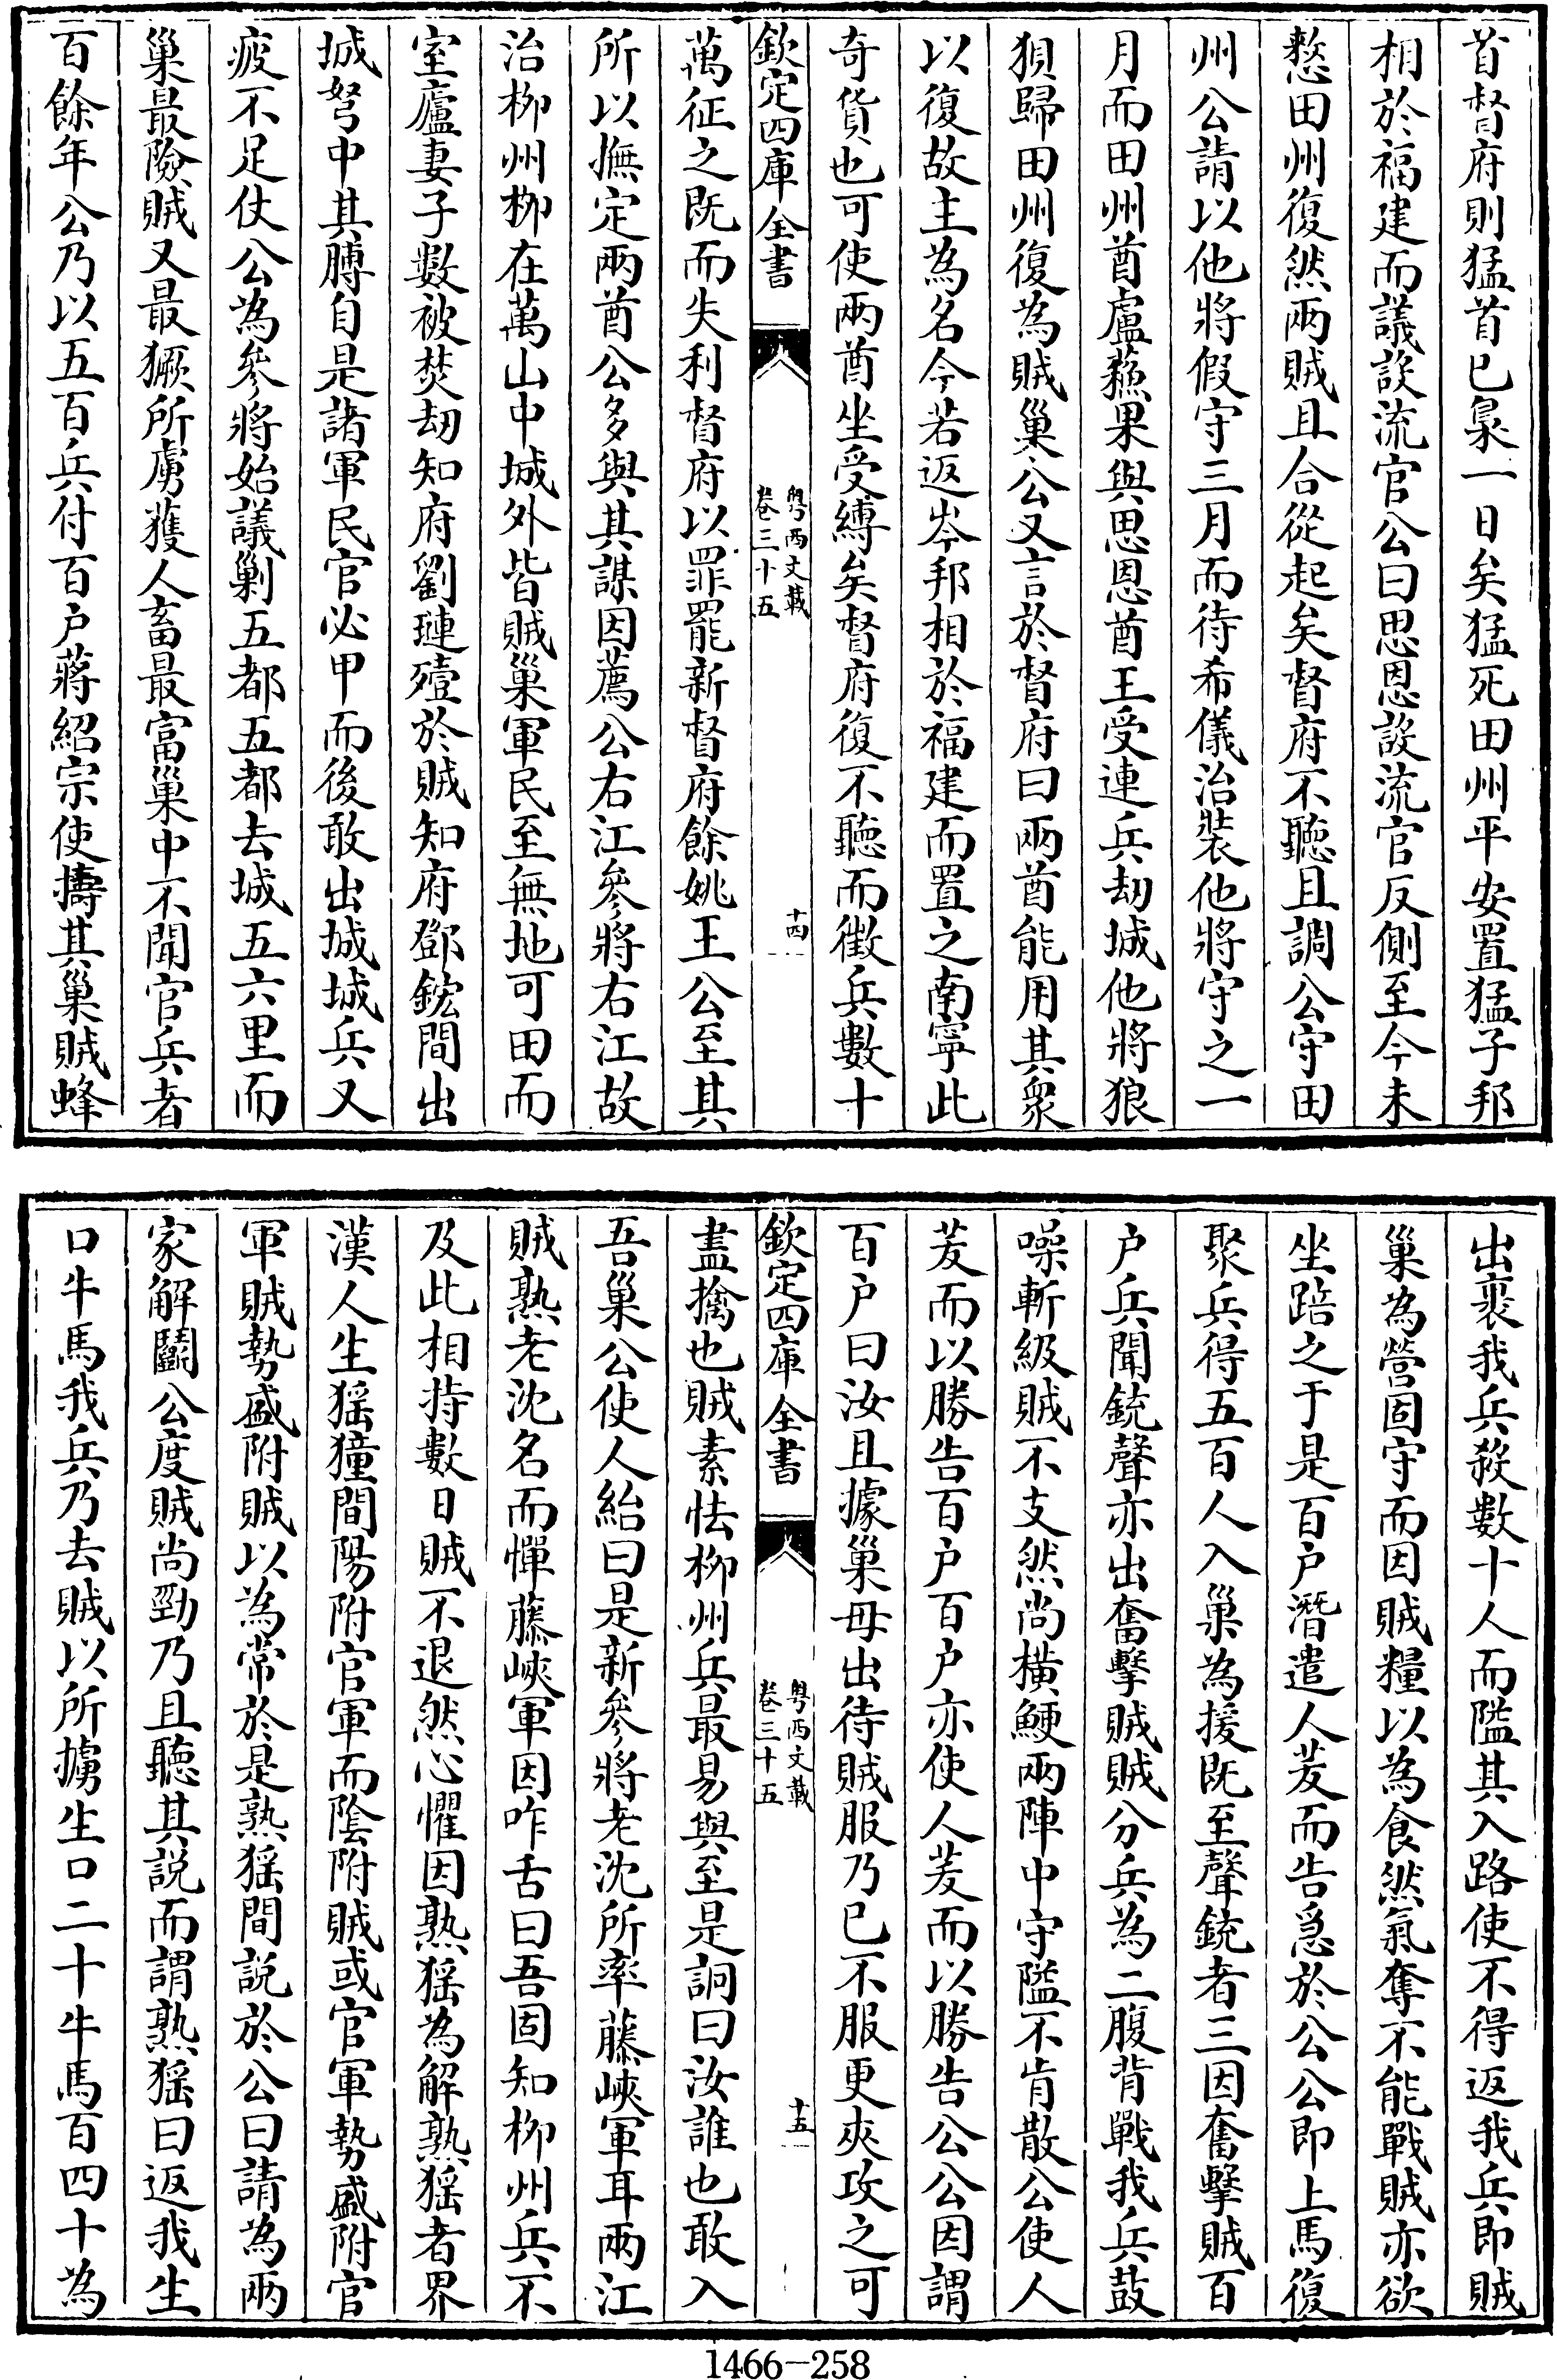 首督府則猛首已梟一日矣猛死田州平安置猛子邦
相於福建而議設流官公曰思恩設流官反側至今未
憖田州復然兩賊且合從起矣督府不聽且調公守田
州公請以他將假守三月而待希儀治裝他將守之一
月而田州酋盧蘇果與思恩酋王受連兵刼城他將狼
狽歸田州復為賊巢公又言於督府曰兩酋能用其衆
以復故主為名今若返岑邦相於福建而置之南寧此
奇貨也可使兩酋坐受縛矣督府復不聽而徵兵數十
欽定四庫全書
粤西文載
卷三十五
十四
萬征之既而失利督府以罪罷新督府餘姚王公至其
所以撫定兩酋公多與其謀因薦公右江參將右江故
治柳州柳在萬山中城外皆賊巢軍民至無地可田而
室廬妻子數被焚刼知府劉璉殪於賊知府鄧鋐間出
城弩中其膊自是諸軍民官必甲而後敢出城城兵又
疲不足仗公為參將始議剿五都五都去城五六里而
巢最險賊又最獗所虜獲人畜最富巢中不聞官兵者
百餘年公乃以五百兵付百户蔣紹宗使擣其巢賊蜂
出裹我兵殺數十人而隘其入路使不得返我兵即賊
巢為營固守而因賊糧以為食然氣奪不能戰賊亦欲
坐踣之于是百户潛遣人芟而告急於公公即上馬復
聚兵得五百人入巢為援既至聲銃者三因奮擊賊百
户兵聞銃聲亦出奮擊賊賊分兵為二腹背戰我兵鼓
噪斬級賊不支然尚橫鯁兩陣中守隘不肯散公使人
芟而以勝告百户百户亦使人芟而以勝告公公因謂
百户曰汝且據巢毋出待賊服乃已不服更夾攻之可
欽定四庫全書
粤西文載
卷三十五
十五
盡擒也賊素怯柳州兵最易與至是詗曰汝誰也敢入
吾巢公使人紿曰是新參將老沈所率藤峽軍耳兩江
賊熟老沈名而憚藤峽軍因咋舌曰吾固知柳州兵不
及此相持數日賊不退然心懼因熟猺為解熟猺者界
漢人生猺獞間陽附官軍而陰附賊或官軍勢盛附官
軍賊勢盛附賊以為常於是熟猺間說於公曰請為兩
家解鬭公度賊尚勁乃且聽其説而謂熟猺曰返我生
口牛馬我兵乃去賊以所擄生口二十牛馬百四十為
1466-258